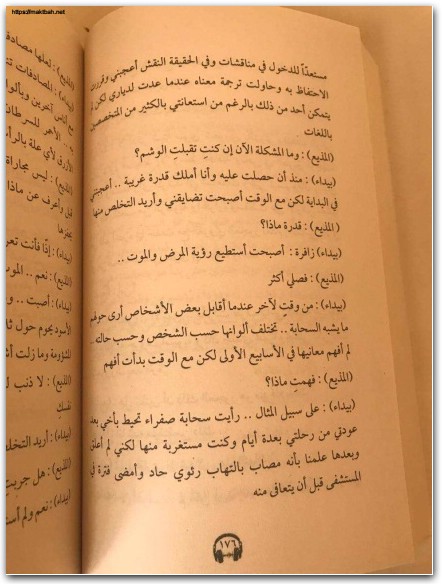 https://maktbah.net
مستعدّاً للدخول في مناقشات وفي الحقيقة النقش أعجبني وقررت
الاحتفاظ به وحاولت ترجمة معناه عندما عدت لدياري لكن لم
يتمكن أحد من ذلك بالرغم من استعانتي بالكثير من المتخصصين
باللغات
(المذيع) : وما المشكلة الآن إن كنتِ تقبلتِ الوشم؟
(بيداء) : منذ أن حصلت عليه وأنا أملك قدرة غريبة .. أعجبتني
في البداية لكن مع الوقت أصبحت تضايقني وأريد التخلص منها
(المذيع) : قدرة ماذا؟
(بيداء) زافرة : أصبحت أستطيع رؤية المرض والموت ..
(المذيع) : فصلي أكثر
(بيداء) : من وقتٍ لآخر عندما أقابل بعض الأشخاص أرى حولهم
ما يشبه السحابة .. تختلف ألوانها حسب الشخص وحسب حالته ..
لم أفهم معانيها في الأسابيع الأولى لكن مع الوقت بدأت أفهم
(المذيع) : فهمتِ ماذا؟
(بيداء) : على سبيل المثال .. رأيت سحابة صفراء تحيط بأخي بعد
عودتي من رحلتي بعدة أيام وكنت مستغربة منها لكني لم أعلق
وبعدها علمنا بأنه مصاب بالتهاب رئوي حاد وأمضى فترة في
المستشفى قبل أن يتعافى منه
١٧٦
(المذيع) : لعلها مصادفة
(بيداء) :
(المذيع) : ليس بمجاراة
(بيداء) : إذًا فأنت
(المذيع) : نعم .. الموت
(بيداء) : أصبت ..
الأسود يحوم حول
(المذيع) : لا ذنب
نفسكِ
(بيداء) : أريد التخلص
(المذيع) : هل جربتِ
(بيداء) : نعم ولم